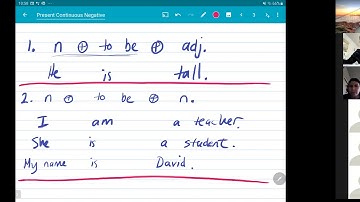 Present Continuous Negative
1. n ⊕ to be ⊕ adj.
He is tall.
2. n ⊕ to be ⊕ n.
I am a teacher.
She is a student.
My name is David.